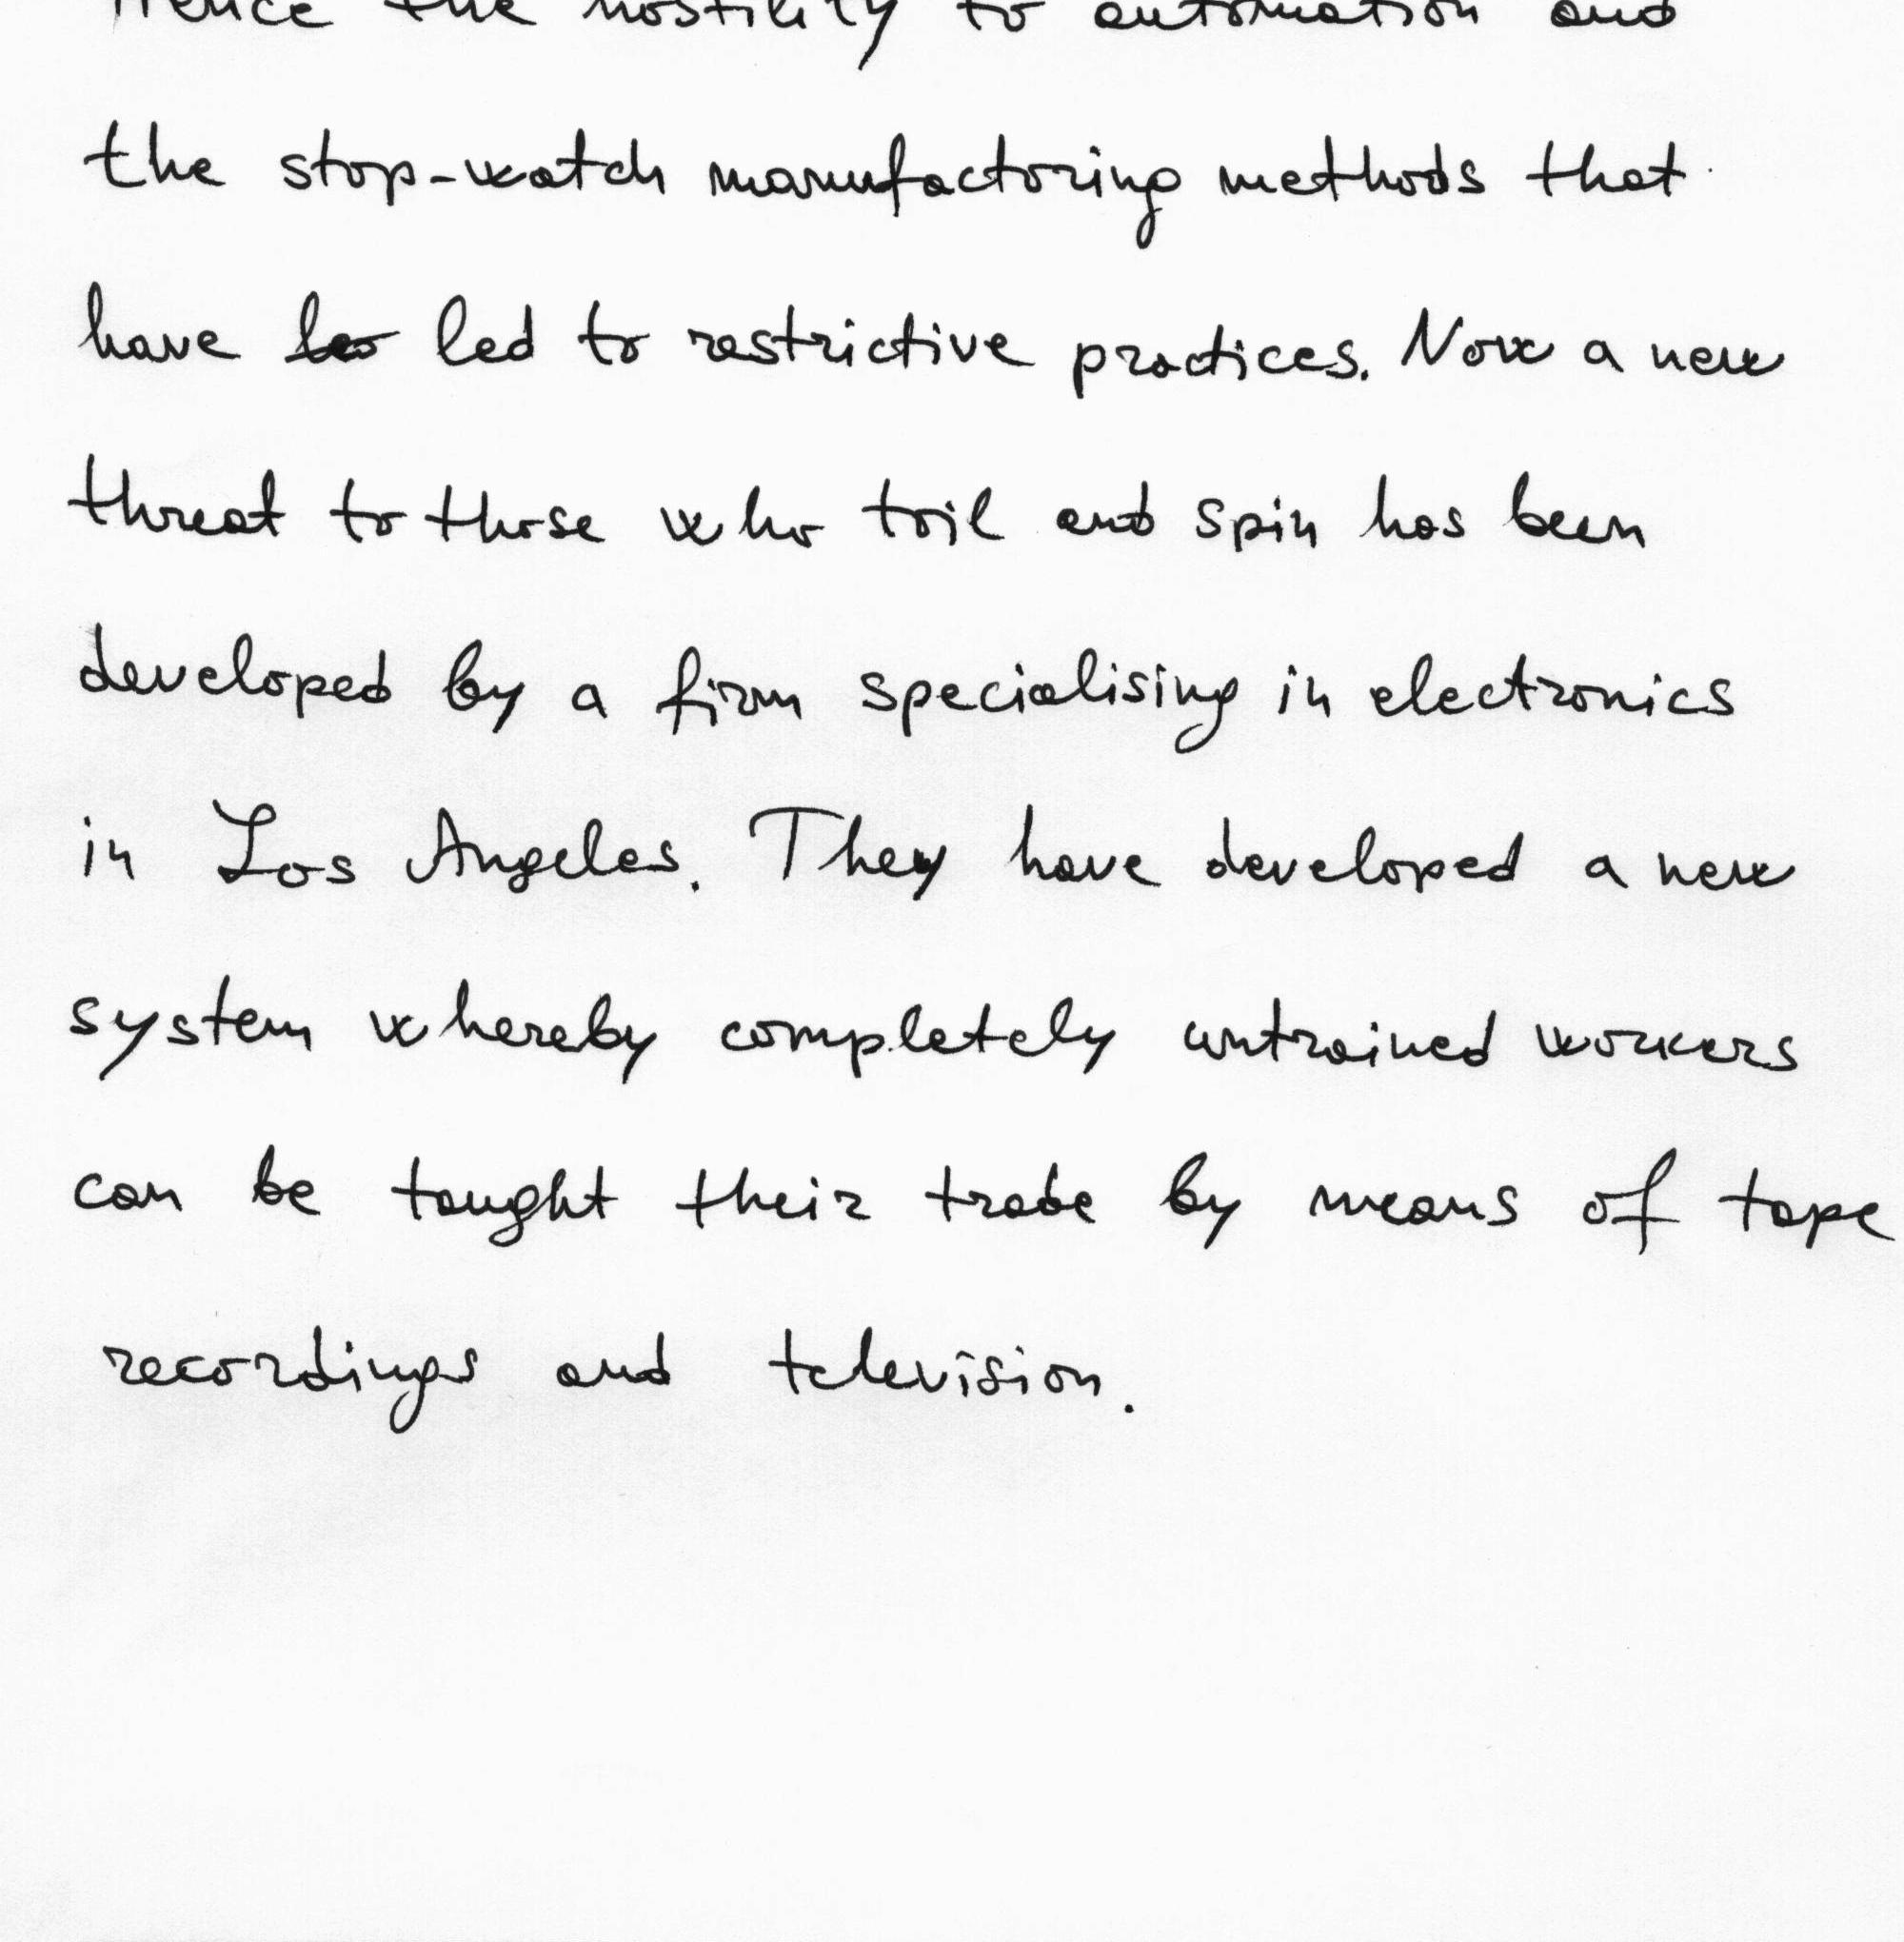 Hence the hostility to automation and
the stop-watch manufactoring methods that
have led to restrictive practices. Now a new
threat to those who toil and spin has been
developed by a firm specialising in electronics
in Los Angeles. They have developed a new
system whereby completely untrained workers
can be tought their trade by means of tape
recordings and television.